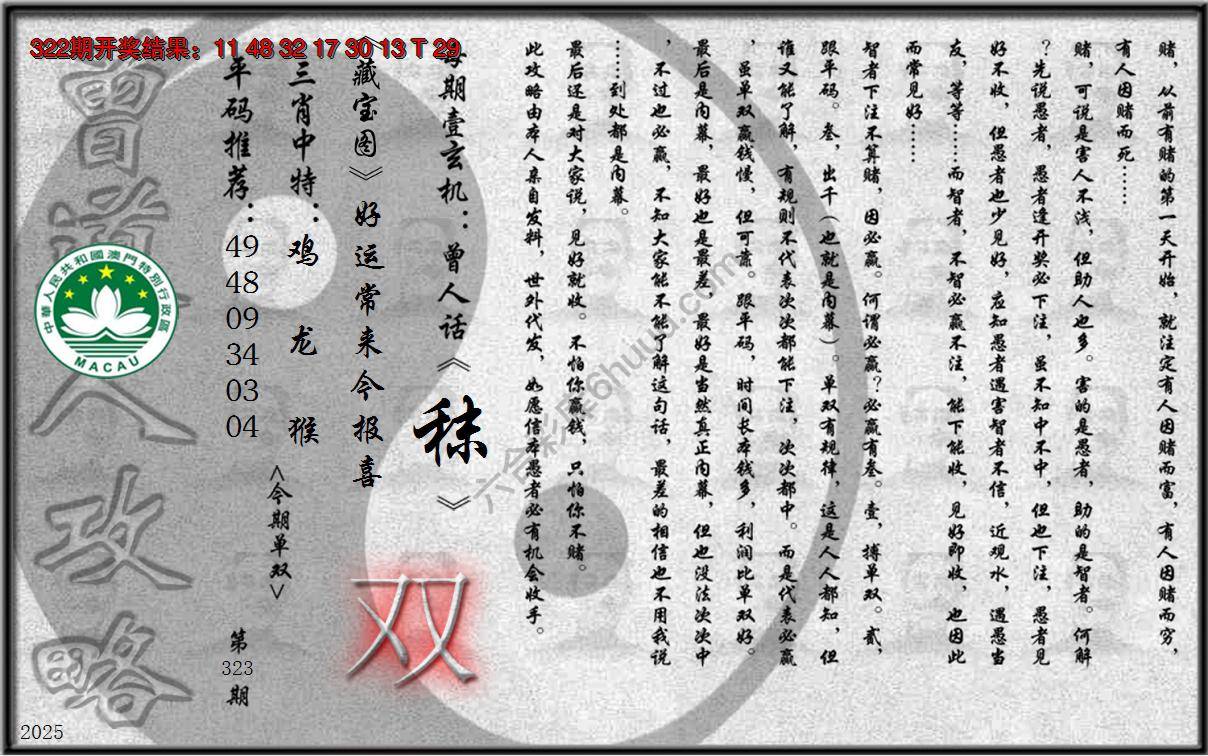 322期开奖结果：11 48 32 17 30 13 T 29
赌，从前有赌的第一天开始，就注定有人因赌而富，有人因赌而穷，
有人因赌而死……
赌，可说是害人不浅，但助人也多。害的是愚者，助的是智者。何解
？先说愚者，愚者逢开奖必下注，虽不知中不中，但也下注，愚者见
好不收，但愚者也少见好，应知愚者遇害智者不信，近观水，遇愚当
友，等等……而智者，不智必赢不注，能下能收，见好即收，也因此
而常见好……
智者下注不算赌，因必赢。何谓必赢？必赢有叁。壹，搏单双。贰，
跟平码。叁，出千（也就是内幕）。单双有规律，这是人人都知，但
谁又能了解，有规则不代表次次都能下注，次次都中。而是代表必赢
，虽单双赢钱慢，但可靠。跟平码，时间长本钱多，利润比单双好。
最后是内幕，最好也是最差，最好是当然真正内幕，但也没法次次中
，不过也必赢，不知大家能不能了解这句话，最差的相信也不用我说
……到处都是内幕。
最后还是对大家说，见好就收。不怕你赢钱，只怕你不赌。
此攻略由本人亲自发料，世外代发，如愿信本愚者必有机会收手。
每期壹玄机：曾人话《秣》
《藏宝图》好运常来今报喜
双
三肖中特：鸡 龙 猴
<今期单双>
平码推荐：
49
48
09
34
03
04
第
323
期
曾道人攻略
中華人民共和國澳門特別行政區
MACAU
2025